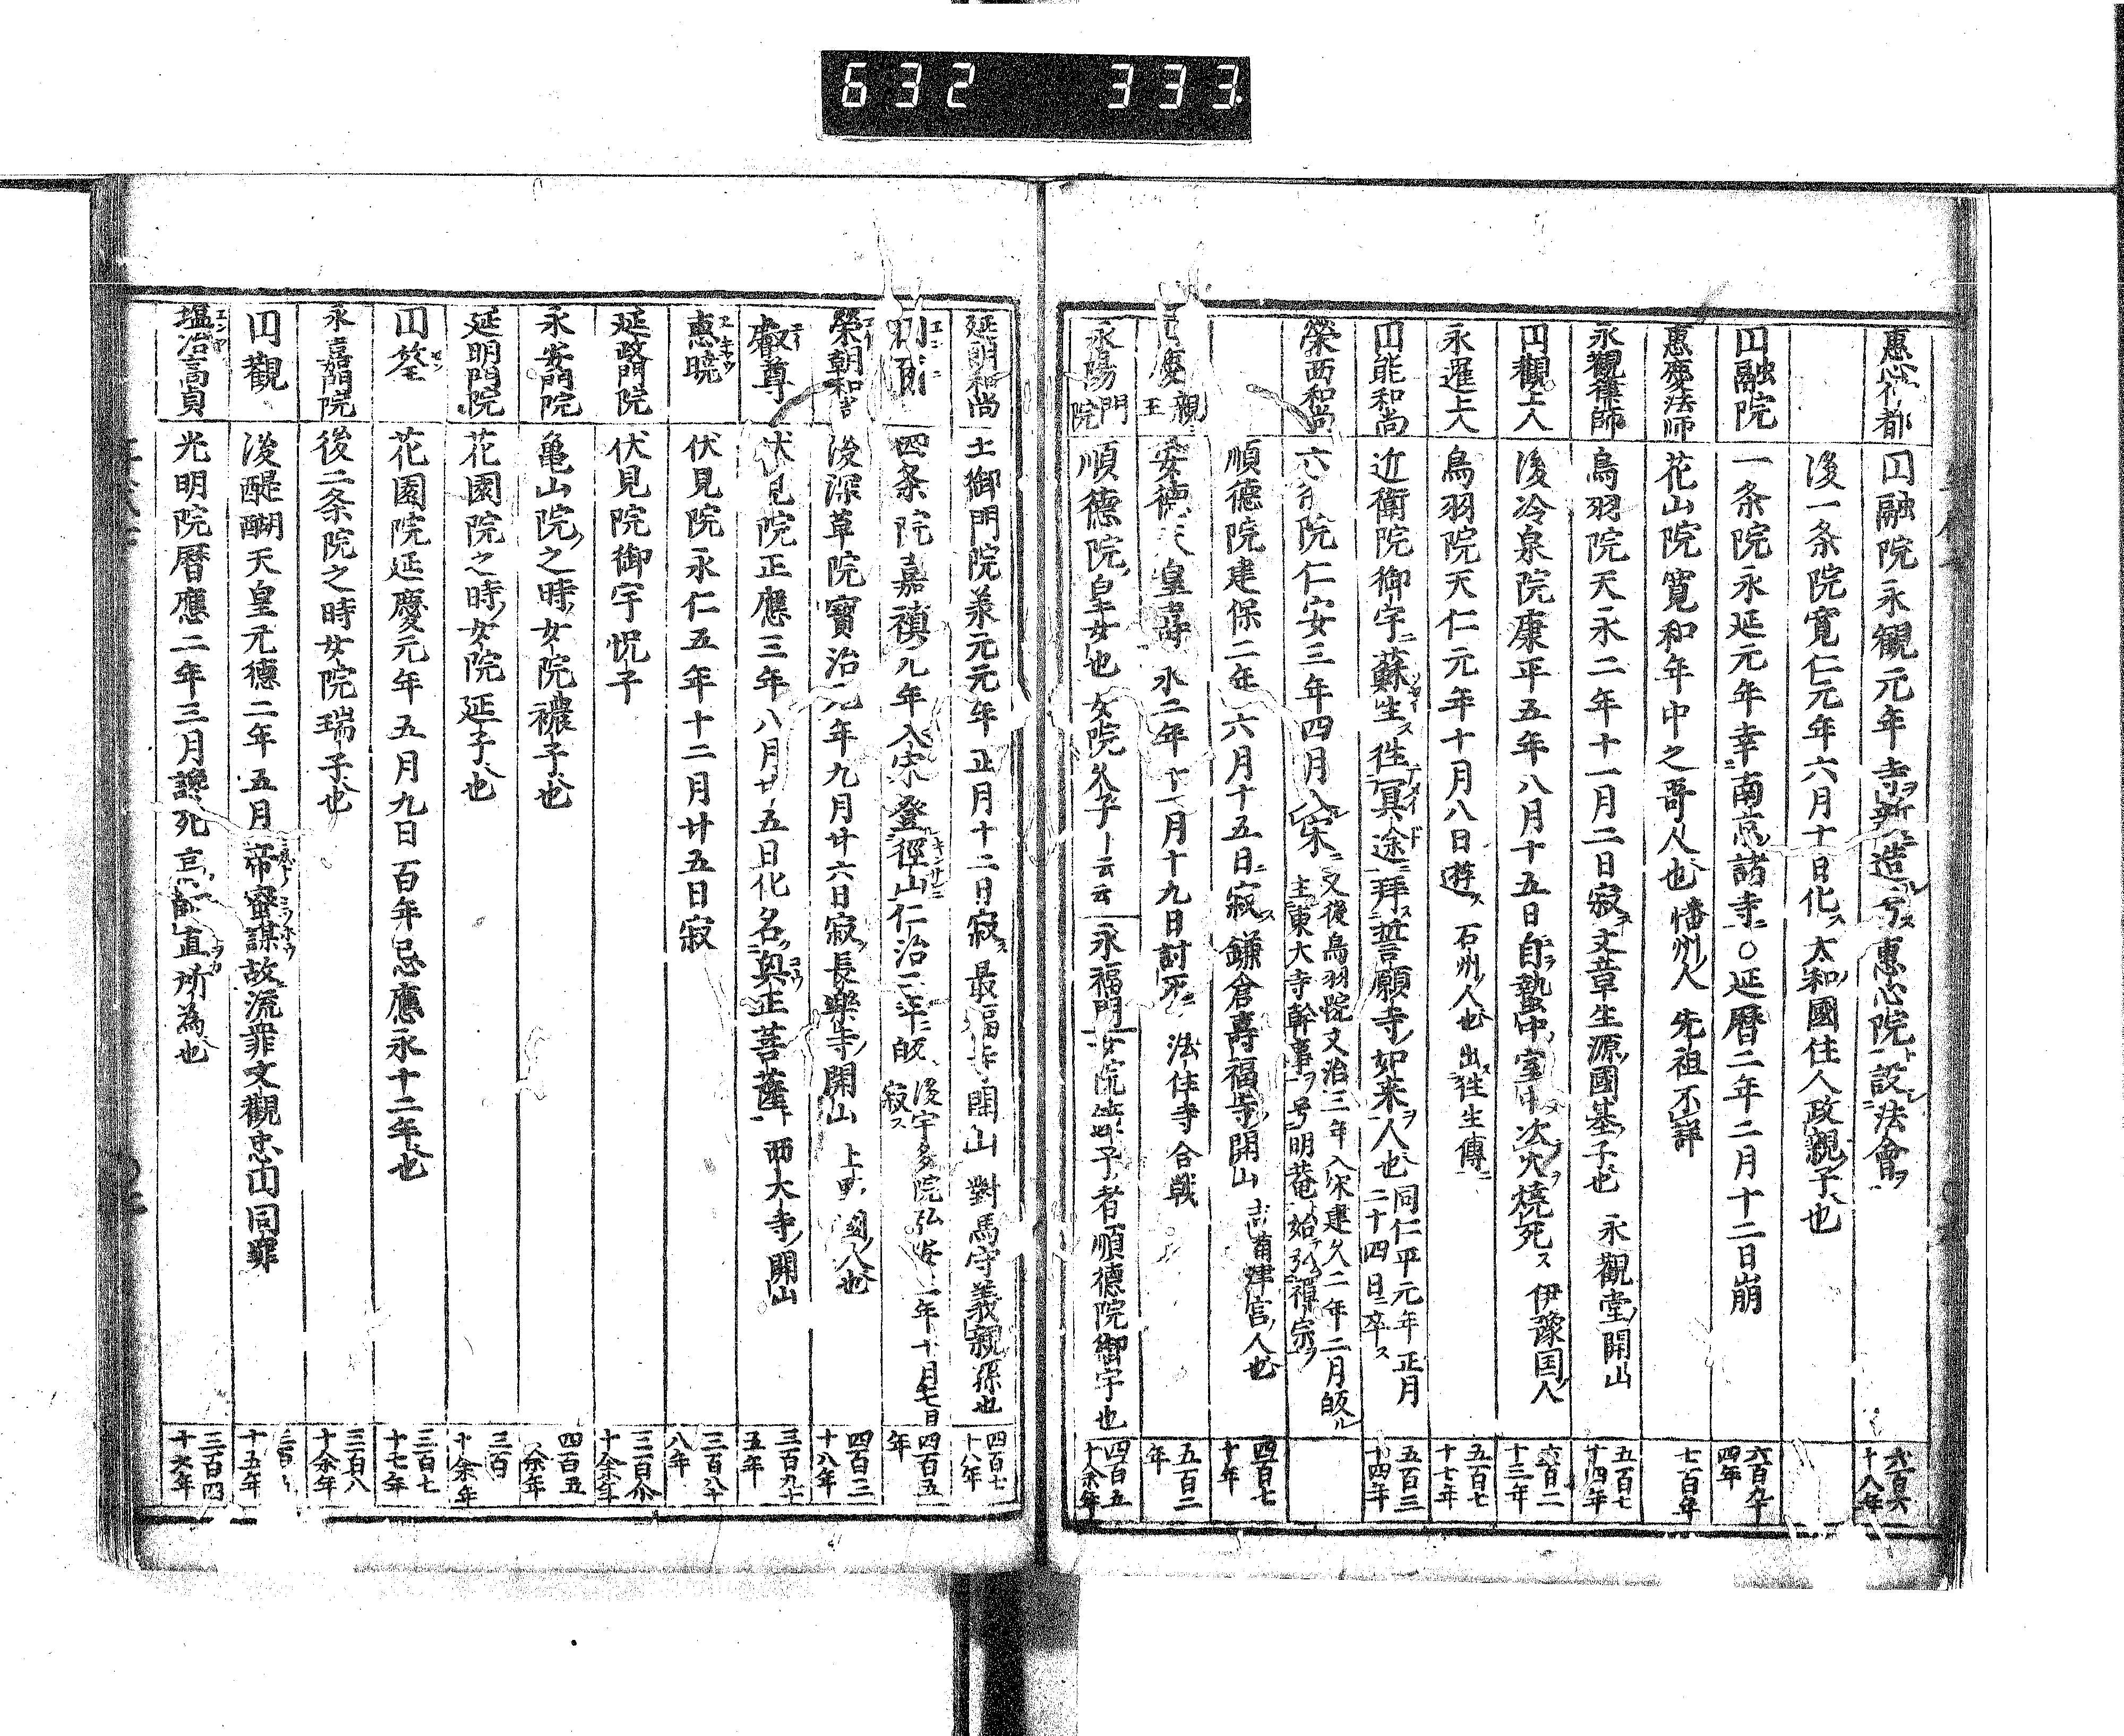 632 333
惠心僧都 囗融院永観元年寺新造号惠心院設法會
後一条院寛仁元年六月十日化ス太和國住人政親子也 六百六十八年
囗融院 一条院永延元年幸南京諸寺〇延暦二年二月十二日崩 六百九十四年
惠慶法师 花山院寛和年中之哥人也 幡州人 先祖不詳 七百年
永觀律師 鳥羽院天永二年十一月二日寂文章生源國基子也 永觀堂開山 五百七十四年
囗觀上人 後冷泉院康平五年八月十五日自蟄中室中次穴焼死ス 伊豫国人 六百二十三年
永暹上人 鳥羽院天仁元年十月八日遊ス 石州人也 出往生傳ニ 五百七十七年
囗能和尚 近衛院御宇ニ蘇生ス徃冥途ニ拜ス誓願寺如来ヲ人也 同仁平元年正月二十四日ニ卒ス 五百三十四年
榮西和尚 六条院仁安三年四月入宋ニ 又後鳥羽院文治三年入宋建久二年二月皈ル
主東大寺幹事ヲ号明菴始弘禪宗ヲ
順德院建保二年六月十五日ニ寂ス鎌倉壽福寺開山 備津宮人也 四百七十年
囗慶親王 安德天皇壽永二年十一月十九日討死ニ 法住寺合戦 五百二年
永陽門院 順德院皇女也女院久子ト云云 永福門女院 子者順德院御宇也 四百五十余年
延朗和尚 土御門院羕元元年正月十二日寂ス 最福寺開山 對馬守義親孫也 四百七十八年
囗爾 四条院嘉禎元年入宋登徑山仁治二年皈 後宇多院弘安二年十月七日寂ス 四百五年
榮朝和吉 後深草院寳治元年九月廿六日寂長樂寺開山 上野國人也 四百三十八年
叡尊 伏見院正應三年八月廿五日化名興正菩薩 西大寺開山 三百九十五年
惠曉 伏見院永仁五年十二月廿五日寂 三百八十八年
延政門院 伏見院御宇悦子 三百八十余年
永安門院 亀山院之時女院穠子也 四百五余年
延明門院 花園院之時女院延子也 三百十余年
囗筌 花園院延慶元年五月九日百年忌應永十二年也 三百七十七年
永嘉門院 後二条院之時女院瑞子也 三百八十余年
囗觀 後醍醐天皇元德二年五月帝蜜謀故流罪文觀忠囗同罪 十五年
塩冶高貞 光明院暦應二年三月讒死高師直所為也 三百四十六年